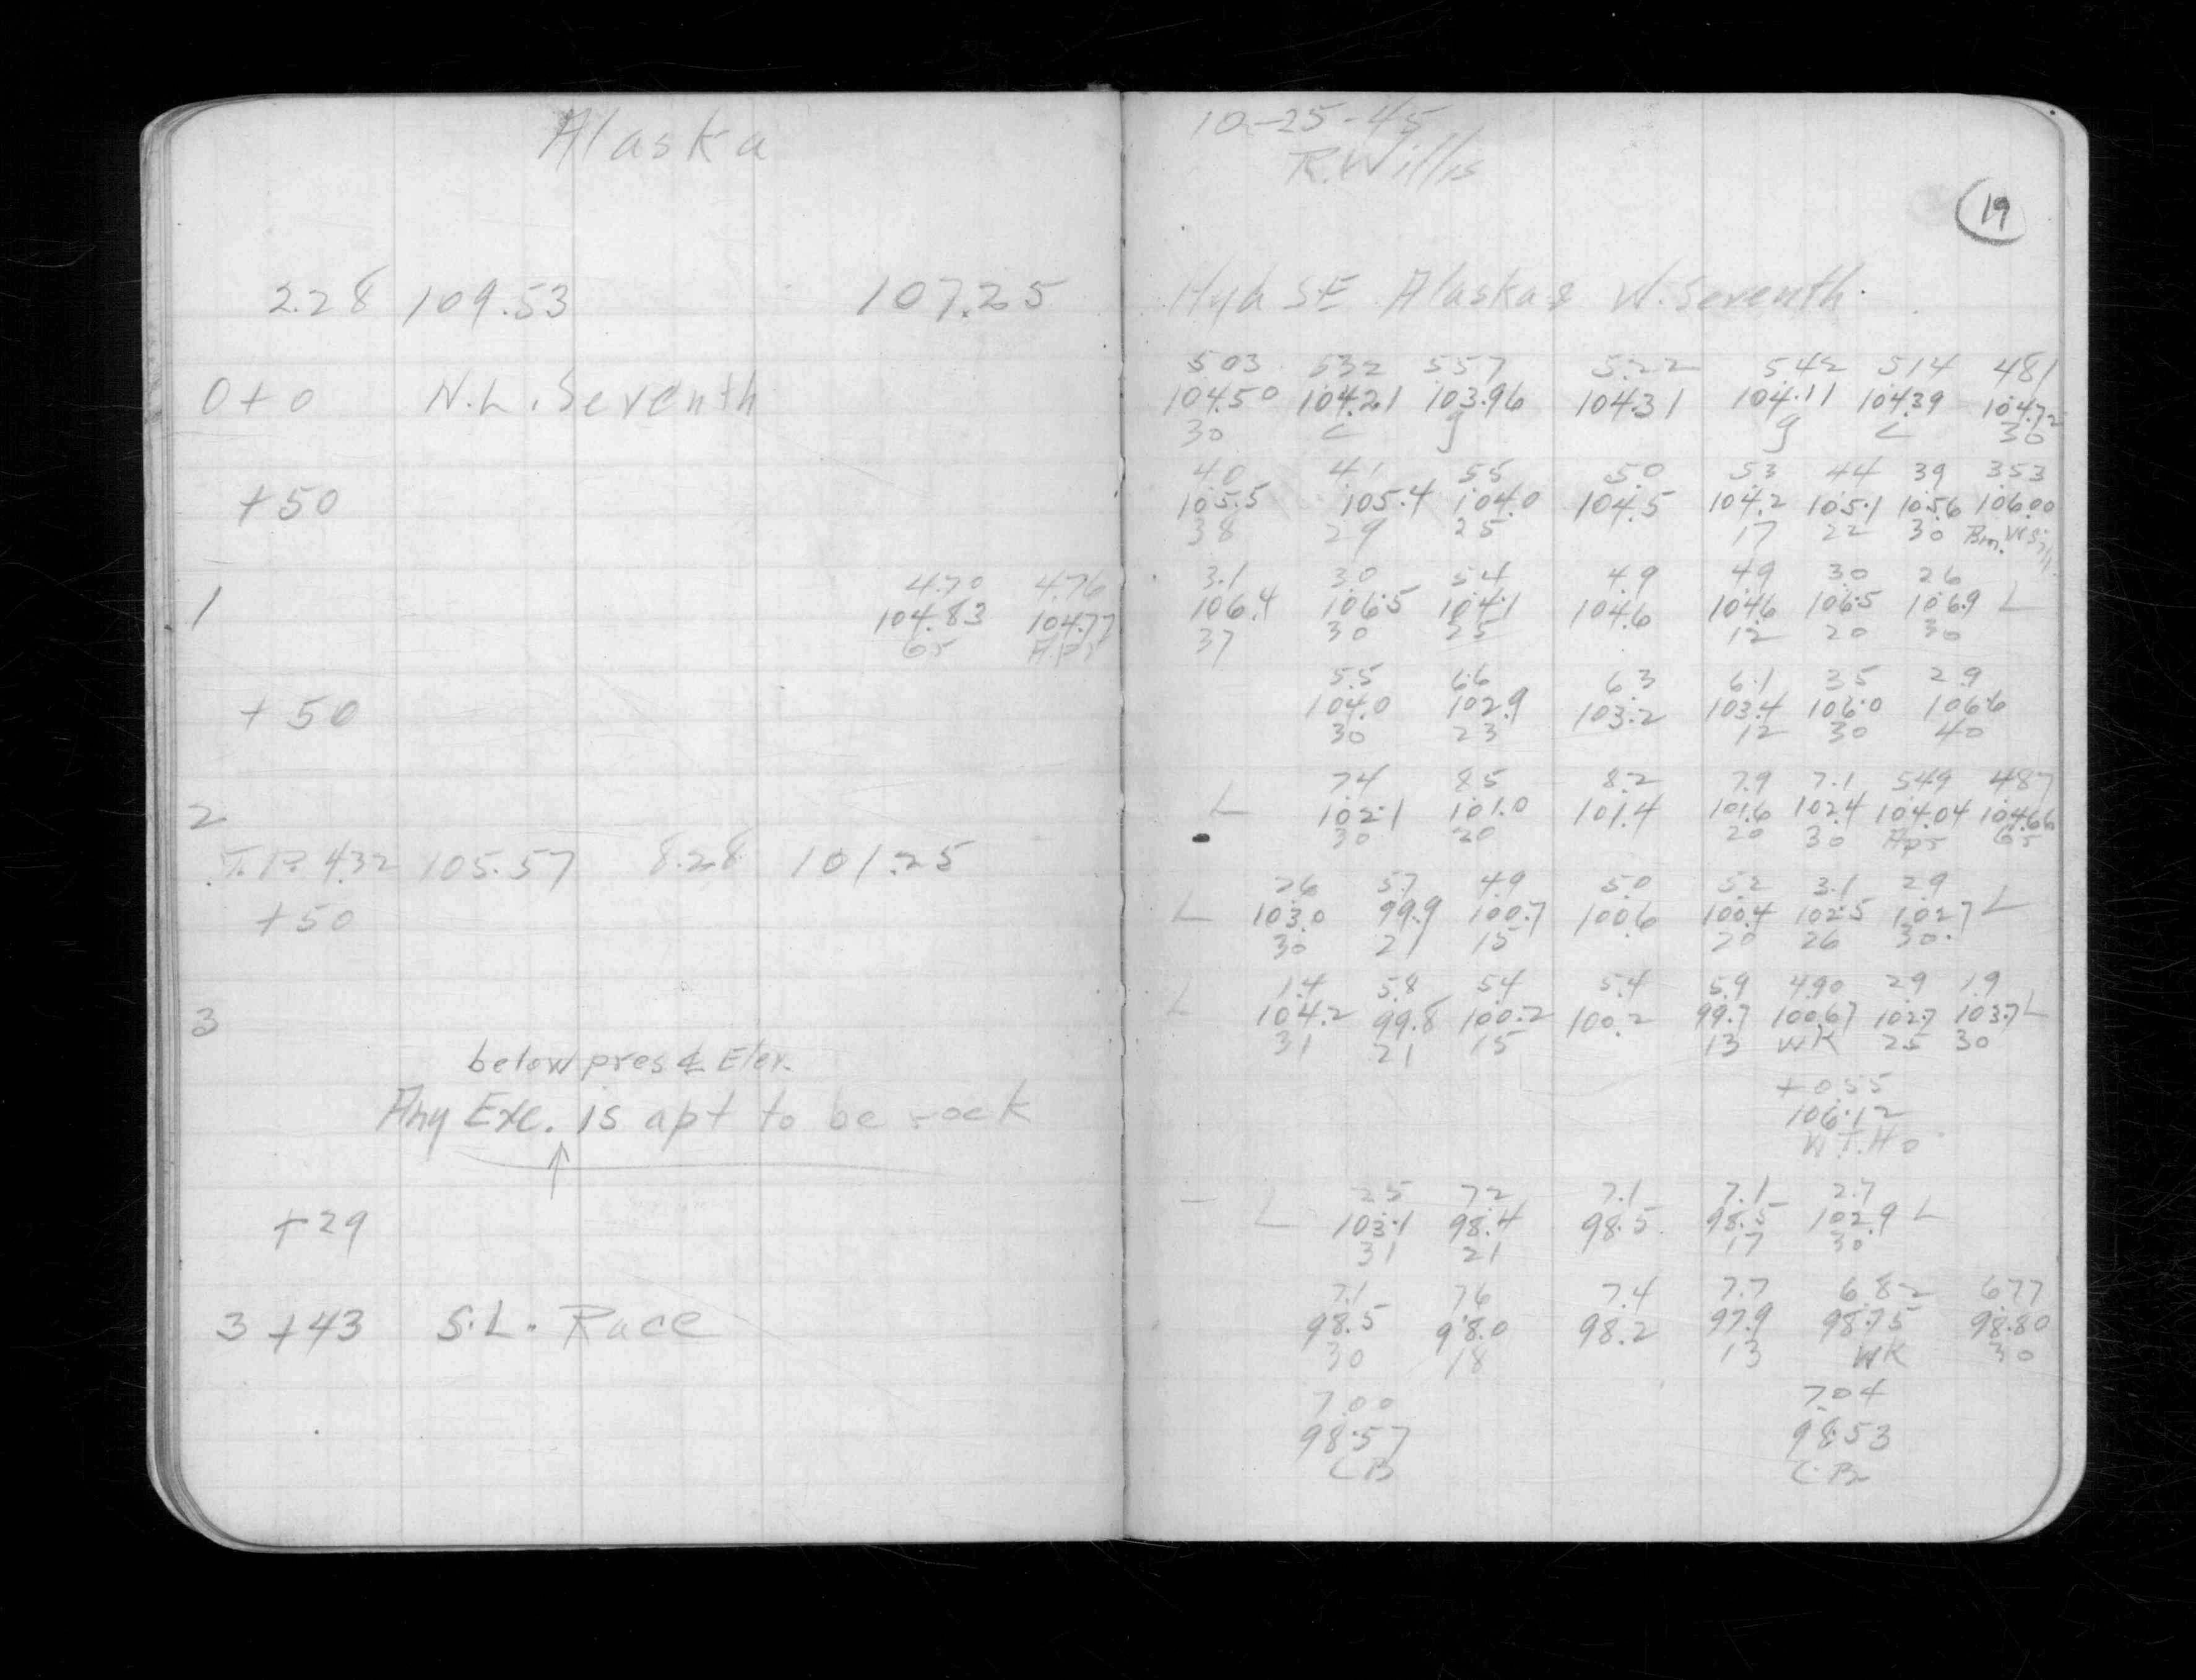 Alaska
2.28 109.53 107.25
0+0 N.L. Seventh
+50
4.70 4.76
1 104.83 104.77
65 Apr
+50
2
T.P. 4.32 105.57 8.28 101.25
+50
3
below pres ℄ Elev.
Any Exc. is apt to be rock
↑
+29
3+43 S.L. Race
10-25-45
R. Willis
19
Hyd SE Alaska & W. Seventh.
5.03 5.32 5.57 5.22 5.42 5.14 4.81
104.50 104.21 103.96 104.31 104.11 104.39 104.72
30 C g g C 30
4.0 4.1 5.5 5.0 5.3 4.4 3.9 3.53
105.5 105.4 104.0 104.5 104.2 105.1 105.6 106.00
38 29 25 17 22 30 Bm.
3.1 3.0 5.4 4.9 4.9 3.0 2.6
106.4 106.5 104.1 104.6 104.6 106.5 106.9 L
37 30 25 12 20 30
5.5 6.6 6.3 6.1 3.5 2.9
104.0 102.9 103.2 103.4 106.0 106.6
30 23 12 30 40
7.4 8.5 8.2 7.9 7.1 5.49 4.87
L 102.1 101.0 101.4 101.6 102.4 104.04 104.66
30 20 20 30 Apr 65
2.6 5.7 4.9 5.0 5.2 3.1 2.9
L 103.0 99.9 100.7 100.6 100.4 102.5 102.7 L
30 21 15 20 26 30
1.4 5.8 5.4 5.4 5.9 4.90 2.9 1.9
L 104.2 99.8 100.2 100.2 99.7 100.67 102.7 103.7 L
31 21 15 13 WK 25 30
+0.55
106.12
W.T.Ho
2.5 7.2 7.1 7.1 2.7
L 103.1 98.4 98.5 98.5 102.9 L
31 21 17 30
7.1 7.6 7.4 7.7 6.82 6.77
98.5 98.0 98.2 97.9 98.75 98.80
30 18 13 WK 30
7.00 7.04
98.57 98.53
CB C.B.